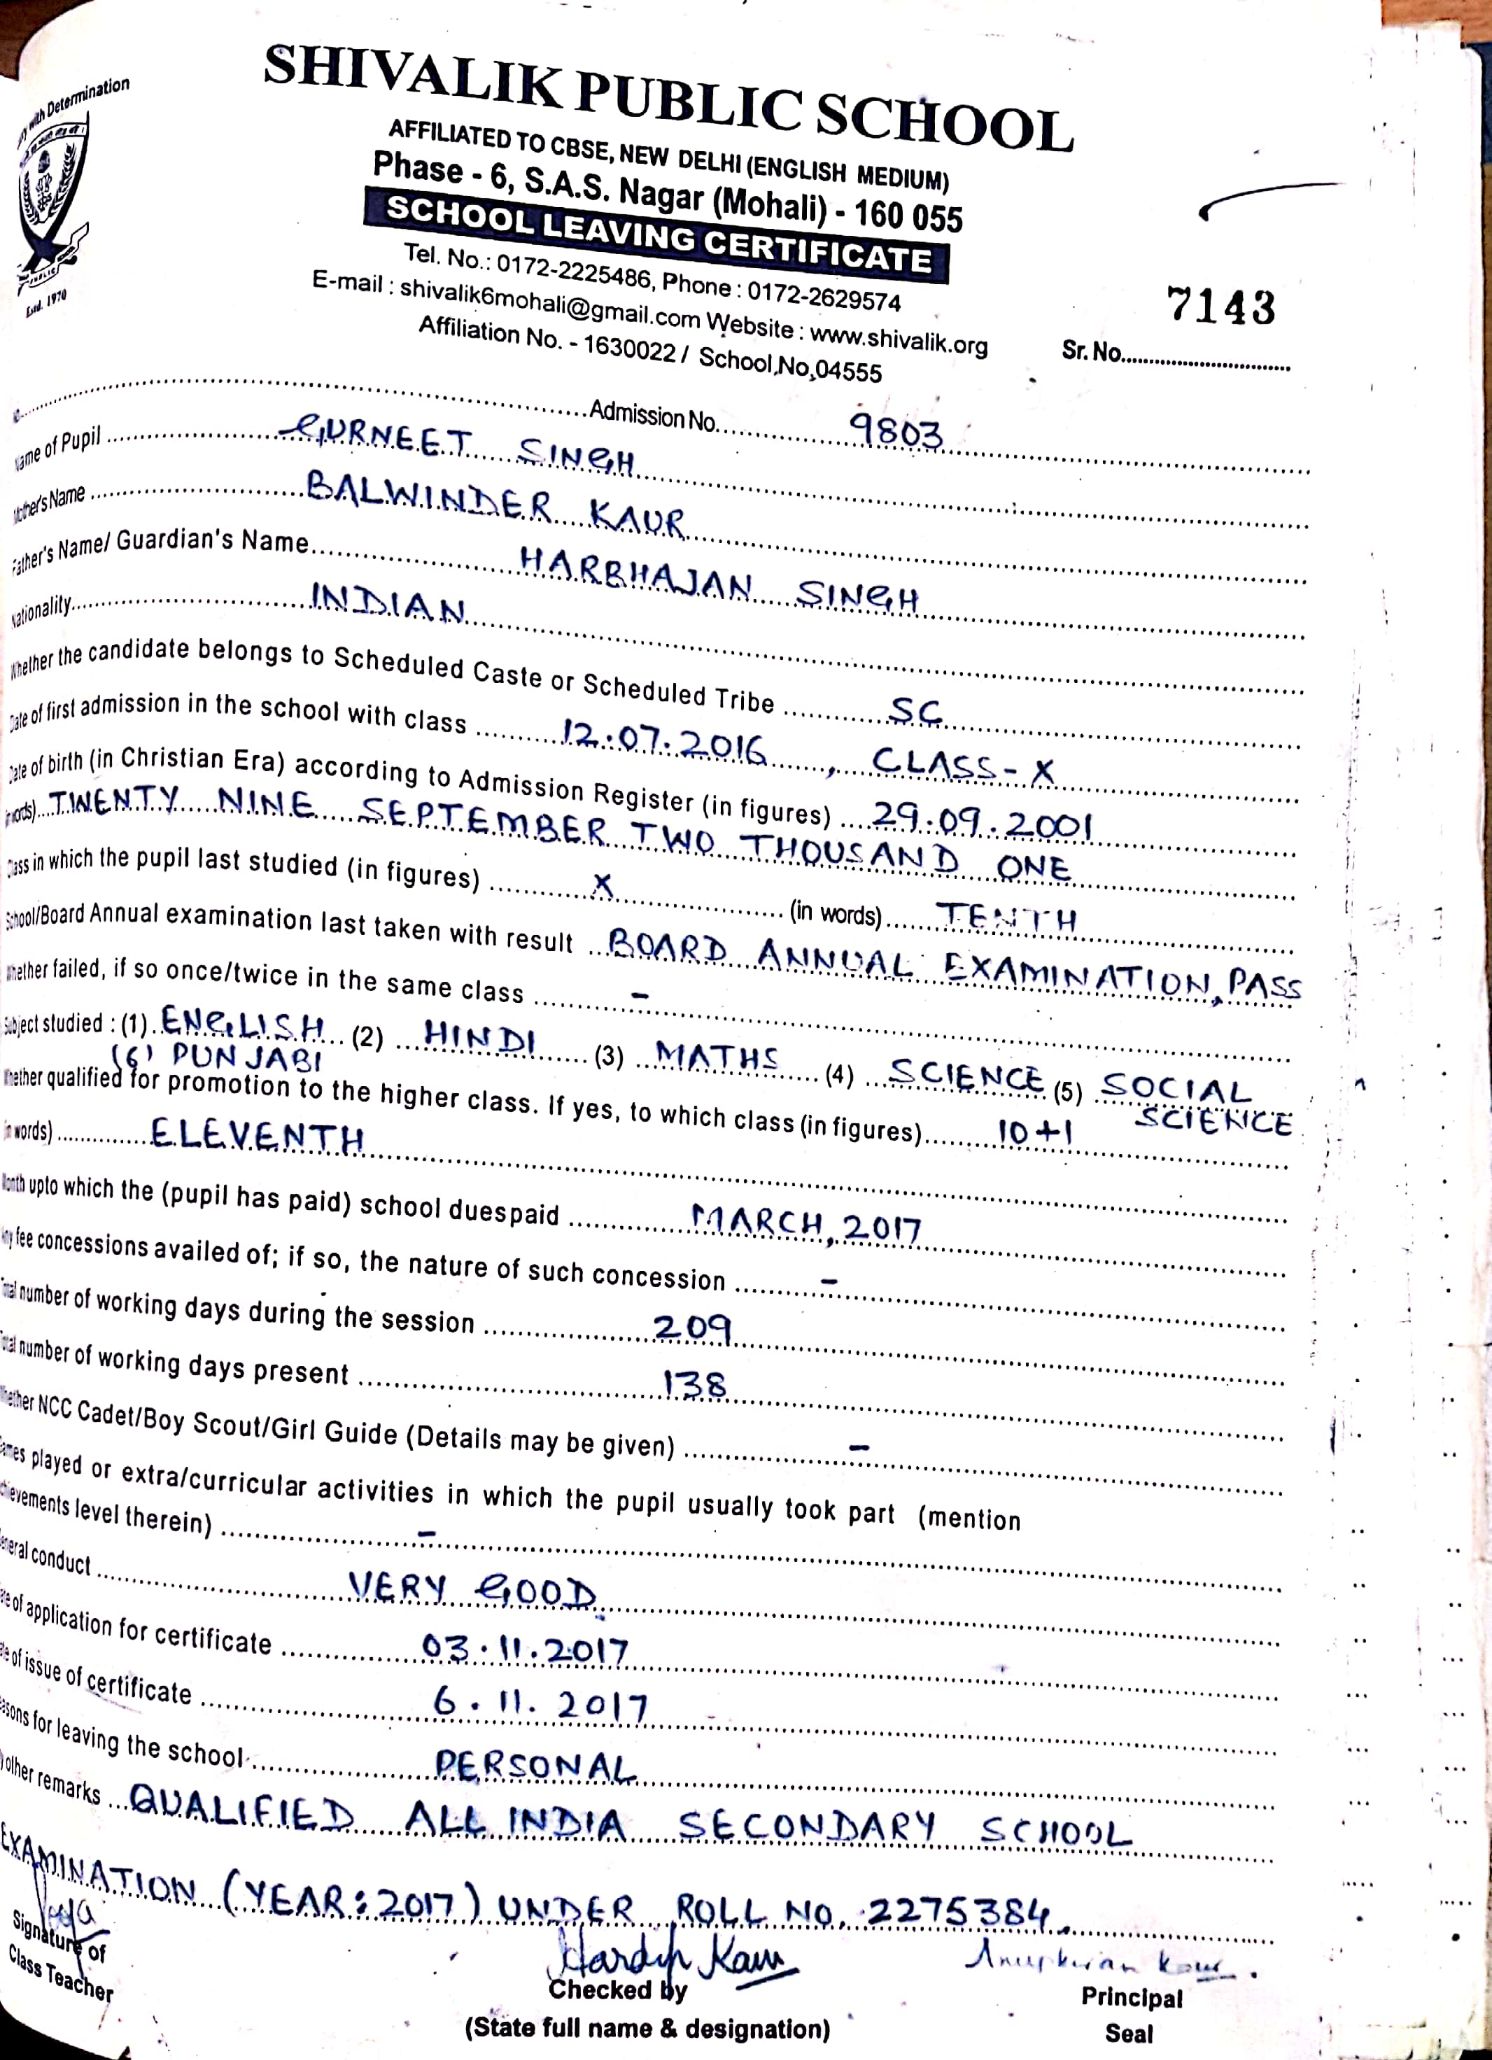 with Determination
Estd. 1970
SHIVALIK PUBLIC SCHOOL
AFFILIATED TO CBSE, NEW DELHI (ENGLISH MEDIUM)
Phase - 6, S.A.S. Nagar (Mohali) - 160 055
SCHOOL LEAVING CERTIFICATE
Tel. No.: 0172-2225486, Phone : 0172-2629574
E-mail : shivalik6mohali@gmail.com Website : www.shivalik.org
Affiliation No. - 1630022 / School,No,04555
7143
Sr. No.
Admission No. 9803
Name of Pupil GURNEET SINGH
Mother's Name BALWINDER KAUR
Father's Name/ Guardian's Name HARBHAJAN SINGH
Nationality INDIAN
Whether the candidate belongs to Scheduled Caste or Scheduled Tribe SC
Date of first admission in the school with class 12.07.2016, CLASS-X
Date of birth (in Christian Era) according to Admission Register (in figures) 29.09.2001
(in words) TWENTY NINE SEPTEMBER TWO THOUSAND ONE
Class in which the pupil last studied (in figures) X (in words) TENTH
School/Board Annual examination last taken with result BOARD ANNUAL EXAMINATION, PASS
Whether failed, if so once/twice in the same class -
Subject studied : (1) ENGLISH (2) HINDI (3) MATHS (4) SCIENCE (5) SOCIAL SCIENCE
(6) PUNJABI
Whether qualified for promotion to the higher class. If yes, to which class (in figures) 10+1
(in words) ELEVENTH
Month upto which the (pupil has paid) school duespaid MARCH, 2017
Any fee concessions availed of; if so, the nature of such concession -
Total number of working days during the session 209
Total number of working days present 138
Whether NCC Cadet/Boy Scout/Girl Guide (Details may be given) -
Games played or extra/curricular activities in which the pupil usually took part (mention
achievements level therein) -
General conduct VERY GOOD
Date of application for certificate 03.11.2017
Date of issue of certificate 6.11.2017
Reasons for leaving the school PERSONAL
other remarks QUALIFIED ALL INDIA SECONDARY SCHOOL
EXAMINATION (YEAR: 2017) UNDER ROLL NO. 2275384.
Signature of
Class Teacher
Hardip Kaur
Checked by
(State full name & designation)
Anupkiran Kaur.
Principal
Seal